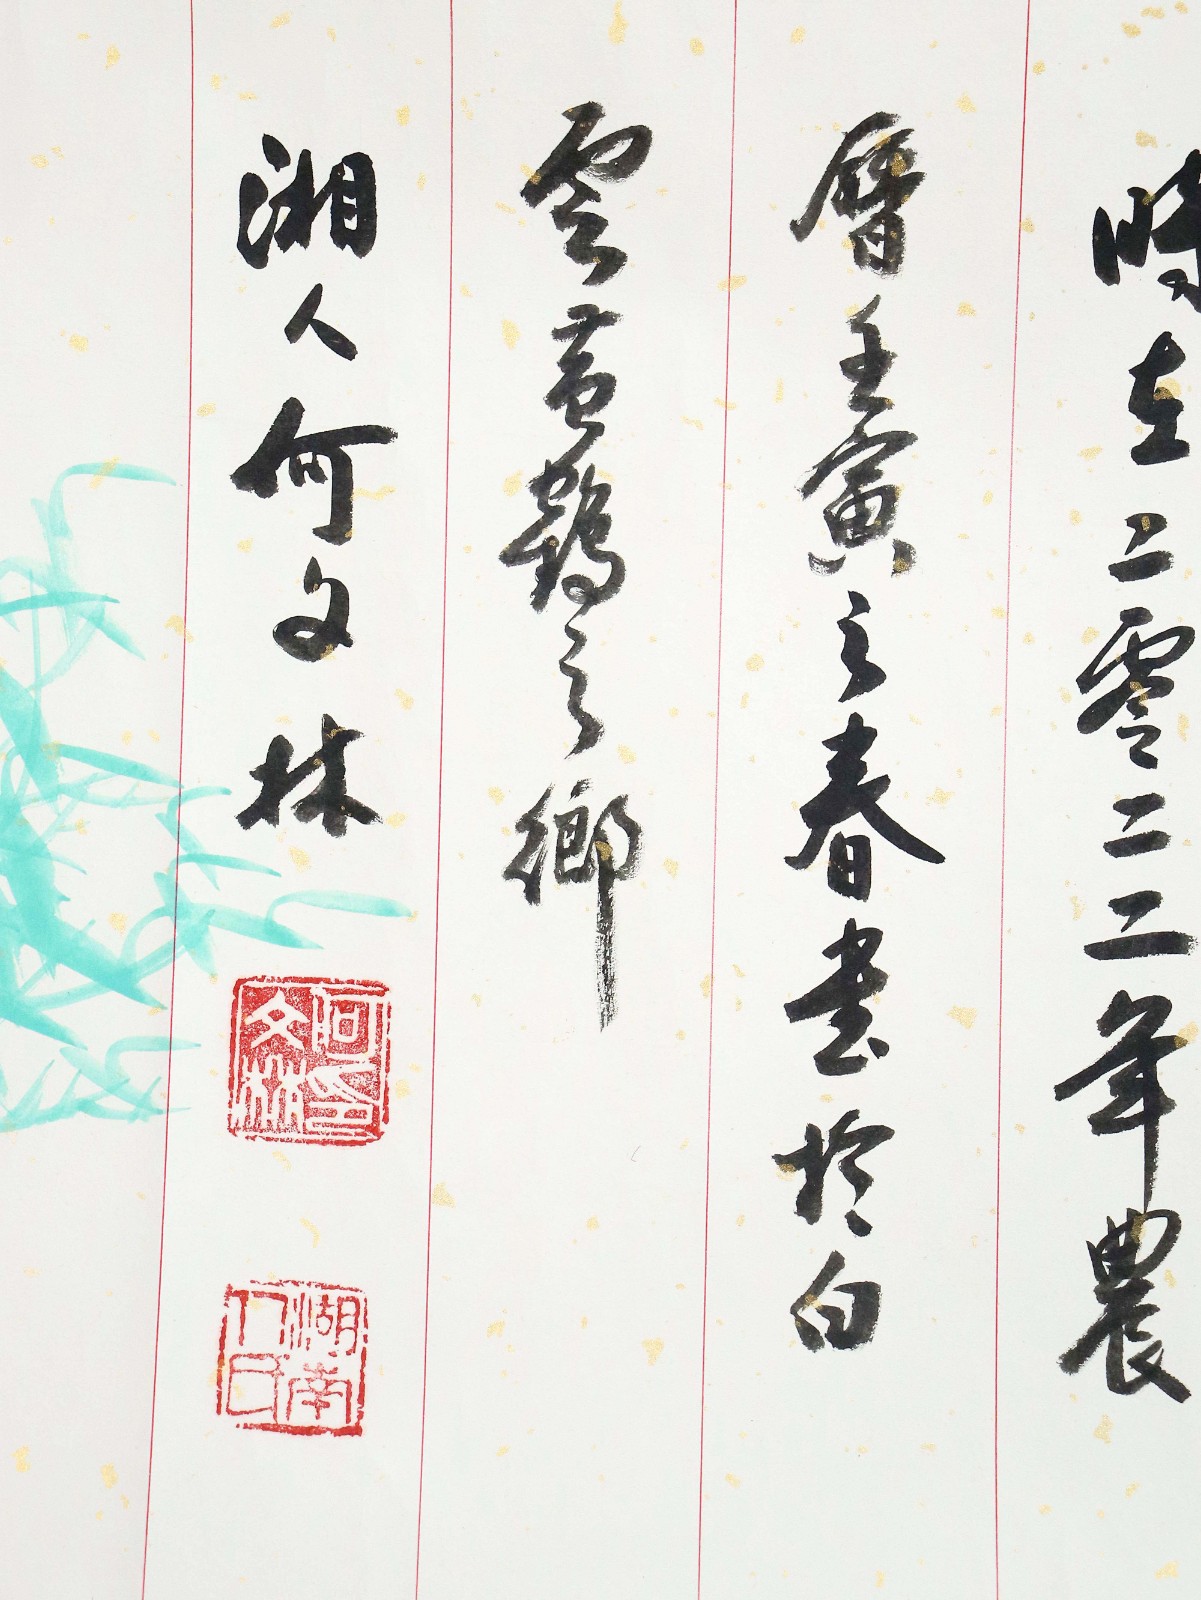 時在二零二二年農
曆壬寅之春書於白
雲黃鶴之鄉
湘人何文林
何文林印
湖南人氏